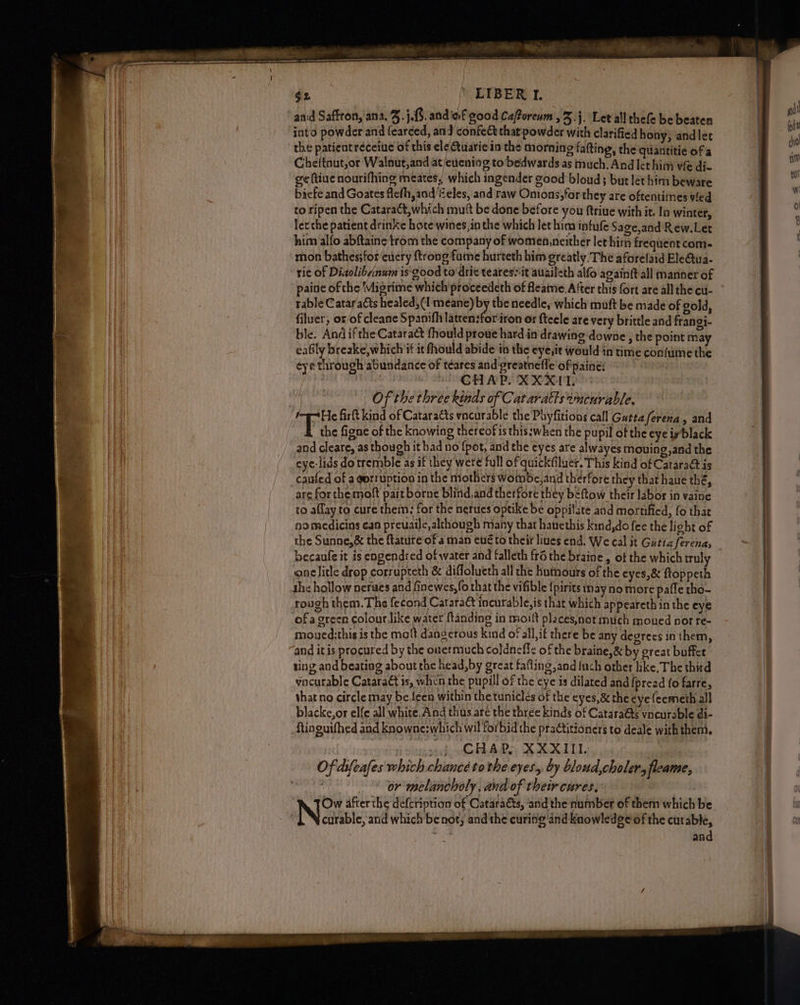 52 LIBER I.
and Saffron, ana, ℥.j.ß. and of good Castoreum, ℥.j. Let all these be beaten
into powder and searced, and confect that powder with clarified hony; and let
the patient receiue of this electuarie in the morning fasting, the quantitie of a
Chestnut, or Walnut, and at euening to bedwards as much. And let him vse di-
gestiue nourishing meates, which ingender good bloud; but let him beware
biefe and Goates flesh, and Eeles, and raw Onions, for they are oftentimes vsed
to ripen the Cataract, which must be done before you striue with it. In winter,
let the patient drinke hote wines, in the which let him infuse Sage, and Rew. Let
him also abstaine from the company of women, neither let him frequent com-
mon bathes; for euery strong fume hurteth him greatly. The aforesaid Electua-
rie of Diaolibanum is good to drie teares: it auaileth also against all manner of
paine of the Migrime which proceedeth of fleame. After this sort are all the cu-
rable Cataracts healed, (I meane) by the needle, which must be made of gold,
siluer, or of cleane Spanish latten: for iron or steele are very brittle and frangi-
ble. And if the Cataract should proue hard in drawing downe, the point may
easily breake, which if it should abide in the eye, it would in time consume the
eye through abundance of teares and greatnesse of paine:
CHAP. XXXII.
Of the three kinds of Cataracts vncurable.
THe first kind of Cataracts vncurable the Phyfitions call Gutta serena, and
the signe of the knowing thereof is this: when the pupil of the eye is black
and cleare, as though it had no spot, and the eyes are alwayes mouing, and the
eye-lids do tremble as if they were full of quicksiluer. This kind of Cataract is
caused of a corruption in the mothers wombe, and therfore they that haue thē,
are for the most part borne blind, and therfore they bestow their labor in vaine
to assay to cure them: for the nerues optike be oppilate and mortified, so that
no medicins can preuaile, although many that haue this kind, do see the light of
the Sunne, & the stature of a man euē to their liues end. We cal it Gutta serena,
because it is engendred of water and falleth frō the braine, of the which truly
one litle drop corrupteth & dissolueth all the humours of the eyes, & stoppeth
the hollow nerues and sinewes, so that the visible spirits may no more passe tho-
rough them. The second Cataract incurable, is that which appeareth in the eye
of a green colour like water standing in moist places, not much moued nor re-
moued: this is the most dangerous kind of all, if there be any degrees in them,
and it is procured by the ouermuch coldnesse of the braine, & by great buffet
ting and beating about the head, by great fasting, and such other like. The third
vncurable Cataract is, when the pupill of the eye is dilated and spread so farre,
that no circle may be seen within the tunicles of the eyes, & the eye seemeth all
blacke, or else all white. And thus are the three kinds of Cataracts vncurable di-
stinguished and knowne: which wil forbid the practitioners to deale with them.
CHAP. XXXIII.
Of diseases which chance to the eyes, by bloud, choler, fleame,
or melancholy, and of their cures.
NOw after the description of Cataracts, and the number of them which be
curable, and which be not, and the curing and knowledge of the curable,
and